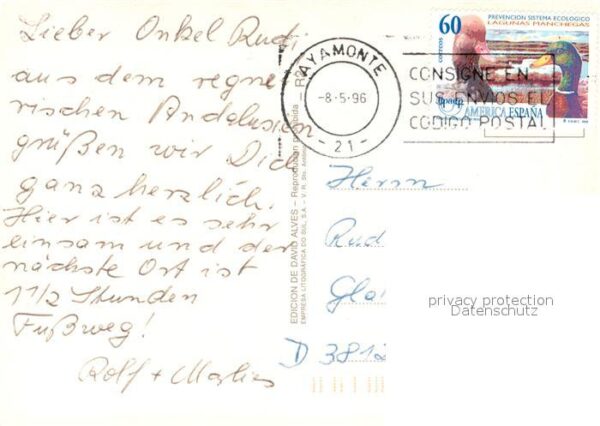 Lieber Onkel Rudi,
aus dem regne-
rischen Andalusien
grüßen wir Dich
ganz herzlich.
Hier ist es sehr
einsam und der
nächste Ort ist
1 1/2 Stunden
Fußweg!
Rolf + Marlies
EDICION DE DAVID ALVES – Reproduccion prohibida
EMPRESA LITOGRÁFICA DO SUL, S.A. – V. R. Sto. António
AYAMONTE
-8-5-96
-21-
60
CORREOS
PREVENCION SISTEMA ECOLOGICO
LAGUNAS MANCHEGAS
AMERICA ESPAÑA
CONSIGNE EN
SUS ENVIOS EL
CODIGO POSTAL
Herrn
Rud
Gla
D 3812
privacy protection
Datenschutz